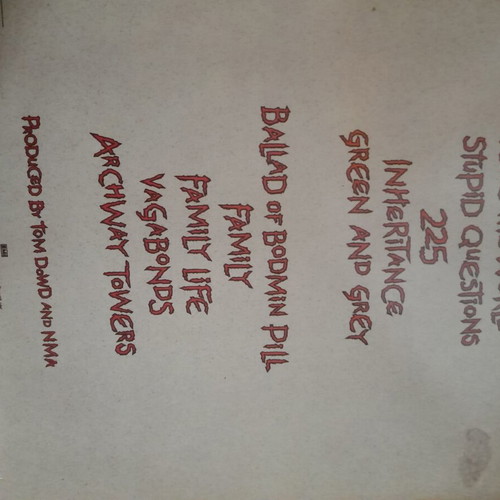 STUPID QUESTIONS
225
INHERITANCE
GREEN AND GREY
BALLAD OF BODMIN PILL
FAMILY
FAMILY LIFE
VAGABONDS
ARCHWAY TOWERS
PRODUCED BY TOM DOWD AND NMA